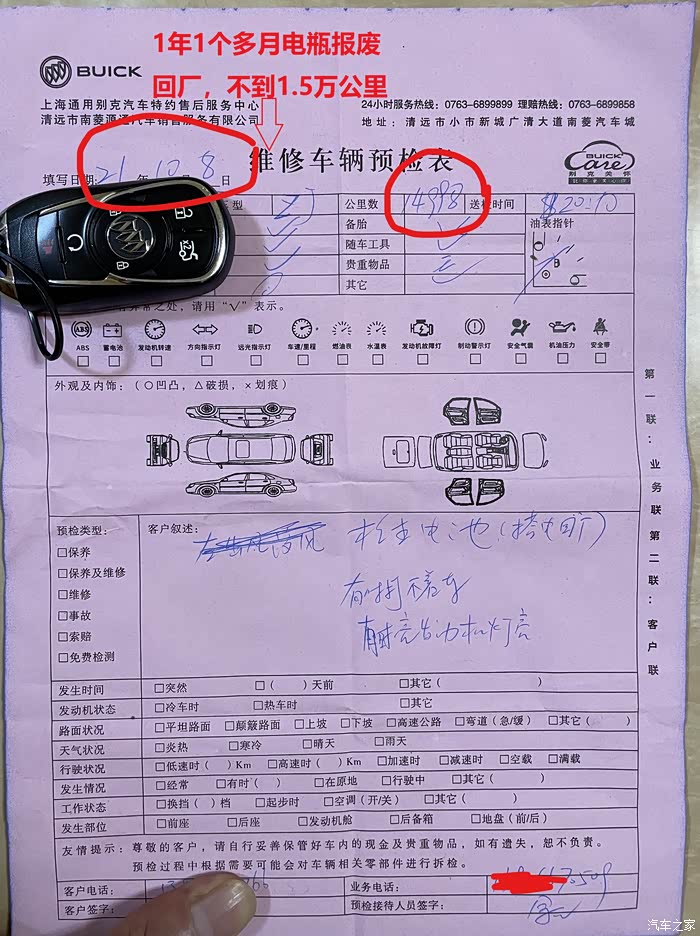 1年1个多月电瓶报废
回厂，不到1.5万公里
BUICK
上海通用别克汽车特约售后服务中心
清远市南菱源通汽车销售服务有限公司
24小时服务热线：0763-6899899 理赔热线：0763-6899858
地址：清远市小市新城广清大道南菱汽车城
维修车辆预检表
BUICK
Care
别克关怀
填写日期：21年10月8日
型 公里数 14998 送检时间 20:10
备胎 油表指针
随车工具
贵重物品
其它
异常之处，请用“√”表示。
ABS 蓄电池 发动机转速 方向指示灯 远光指示灯 车速/里程 燃油表 水温表 发动机故障灯 制动警示灯 安全气囊 机油压力 安全带
外观及内饰：（○凹凸，△破损，×划痕）
第一联：业务联 第二联：客户联
预检类型： 客户叙述：
□保养 检查电池（搭电来厂）
□保养及维修
□维修 有时打不着车
□事故 有时亮发动机灯亮
□索赔
□免费检测
发生时间 □突然 □（ ）天前 □其它（ ）
发动机状态 □冷车时 □热车时 □其它
路面状况 □平坦路面 □颠簸路面 □上坡 □下坡 □高速公路 □弯道（急/缓） □其它（ ）
天气状况 □炎热 □寒冷 □晴天 □雨天
行驶状况 □低速时（ ）Km □高速时（ ）Km □加速时 □减速时 □空载 □满载
发生情况 □经常 □有时（ ） □在原地 □行驶中 □其它（ ）
工作状态 □换挡（ ）档 □起步时 □空调（开/关） □其它（ ）
发生部位 □前座 □后座 □发动机舱 □后备箱 □地盘（前/后）
友情提示：尊敬的客户，请自行妥善保管好车内的现金及贵重物品，如有遗失，恕不负责。
预检过程中根据需要可能会对车辆相关零部件进行拆检。
客户电话： 业务电话：
客户签字： 预检接待人员签字：
汽车之家